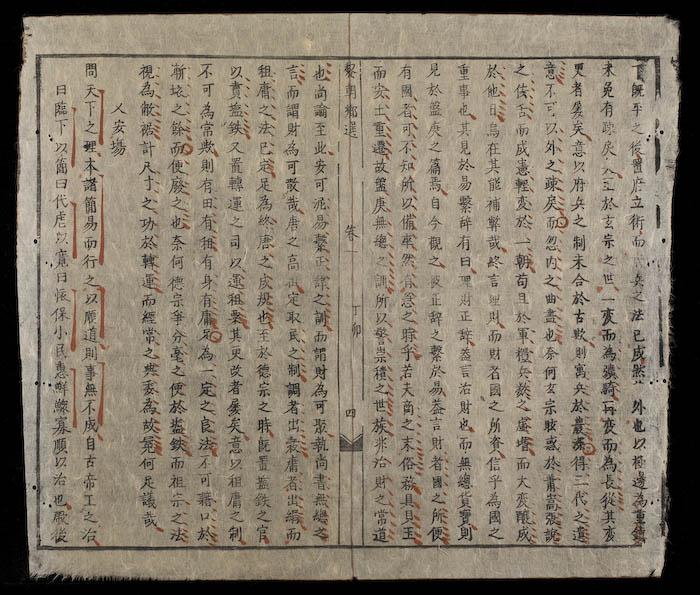 既平之後置府立術而兵之法已成然外也以極邊為重鎮
未免有疎矣至於玄宗之世一變而為彍騎再變而為長從其變
更者屢矣意以府兵之制未合於古歟則寓兵於農深得三代之遺
意不可以外之疎矣而忽內之曲盡也奈何玄宗眩惑於蕭嵩張說
之佞舌而成憲輕變於一朝苟且於軍禮兵數之虛增而大變釀成
於他日烏在其能補弊哉終言理財而財者國之所資信乎為國之
重事也其見於易繫辭有曰理財正辭蓋言治財也而無總貨寶則
見於盤庚之篇焉自今觀之彼正辭之繫於易蓋言財者國之所便
有國者可不知所以備卒然有急之時乎若夫商之末俗務具貝玉
而安土重遷故盤庚無總之訓所以警崇積之世族非治財之常道
黎朝鄉選 卷一 丁卯 四
也尚論至此安可泥易繫正辭之訓而謂財為可聚執尚書無總之
言而謂財為可散哉唐之高武定取民之制調者出裘庸者出絹而
租庸之法已定足為終唐之成規也至於德宗之時既置鹽鉄之官
以責鹽鉄又置轉運之司以運租要其更改者屢矣意以租庸之制
不可為常歟則有田有租有身有庸足為一定之良法不可藉口於
斬垓之餘而便廢之也奈何德宗爭分毫之便於鹽鉄而祖宗之法
視為敝蓰計尺寸之功於轉運而經常之典委為故冕何足議哉
乂安場
問天下之理本諸簡易而行之以順道則事無不成自古帝王之治
曰臨下以簡曰代虐以寬曰懷保小民惠鮮鰥寡順以治也厥後